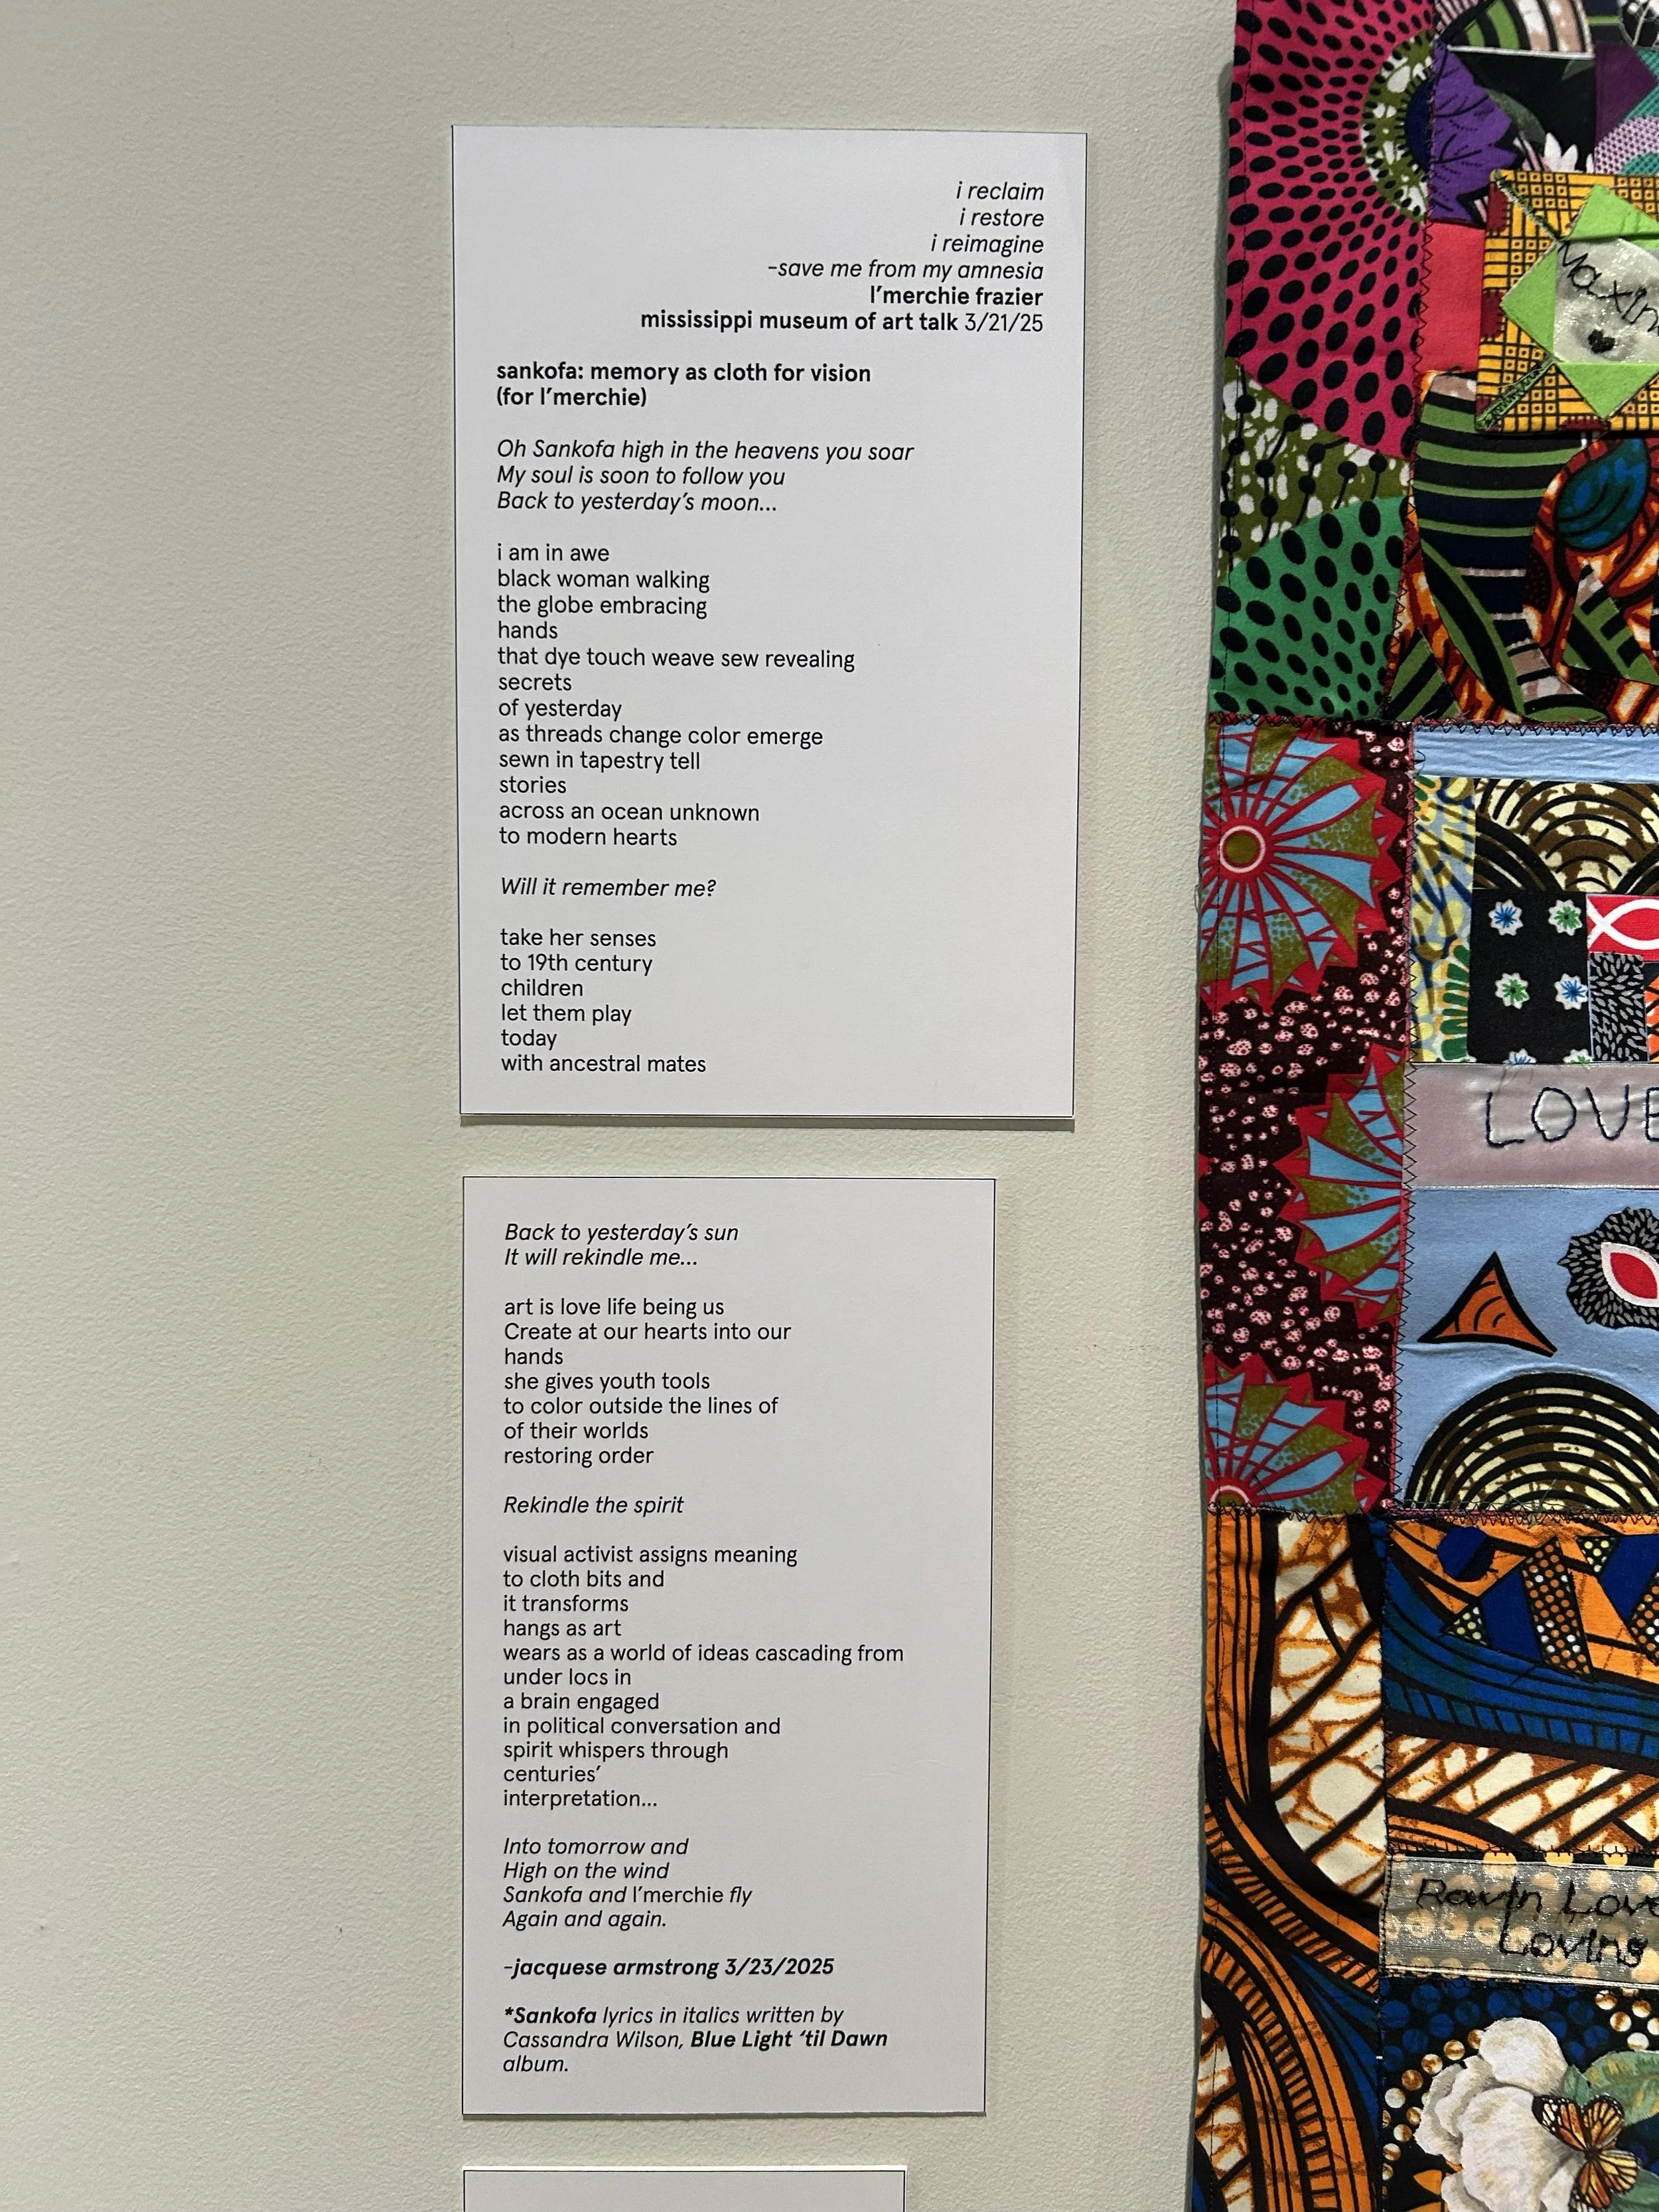 i reclaim
i restore
i reimagine
-save me from my amnesia
l'merchie frazier
mississippi museum of art talk 3/21/25
sankofa: memory as cloth for vision
(for l'merchie)
Oh Sankofa high in the heavens you soar
My soul is soon to follow you
Back to yesterday's moon...
i am in awe
black woman walking
the globe embracing
hands
that dye touch weave sew revealing
secrets
of yesterday
as threads change color emerge
sewn in tapestry tell
stories
across an ocean unknown
to modern hearts
Will it remember me?
take her senses
to 19th century
children
let them play
today
with ancestral mates
Back to yesterday's sun
It will rekindle me...
art is love life being us
Create at our hearts into our
hands
she gives youth tools
to color outside the lines of
of their worlds
restoring order
Rekindle the spirit
visual activist assigns meaning
to cloth bits and
it transforms
hangs as art
wears as a world of ideas cascading from
under locs in
a brain engaged
in political conversation and
spirit whispers through
centuries'
interpretation...
Into tomorrow and
High on the wind
Sankofa and l'merchie fly
Again and again.
-jacquese armstrong 3/23/2025
*Sankofa lyrics in italics written by
Cassandra Wilson, Blue Light 'til Dawn
album.
LOVE
Loving